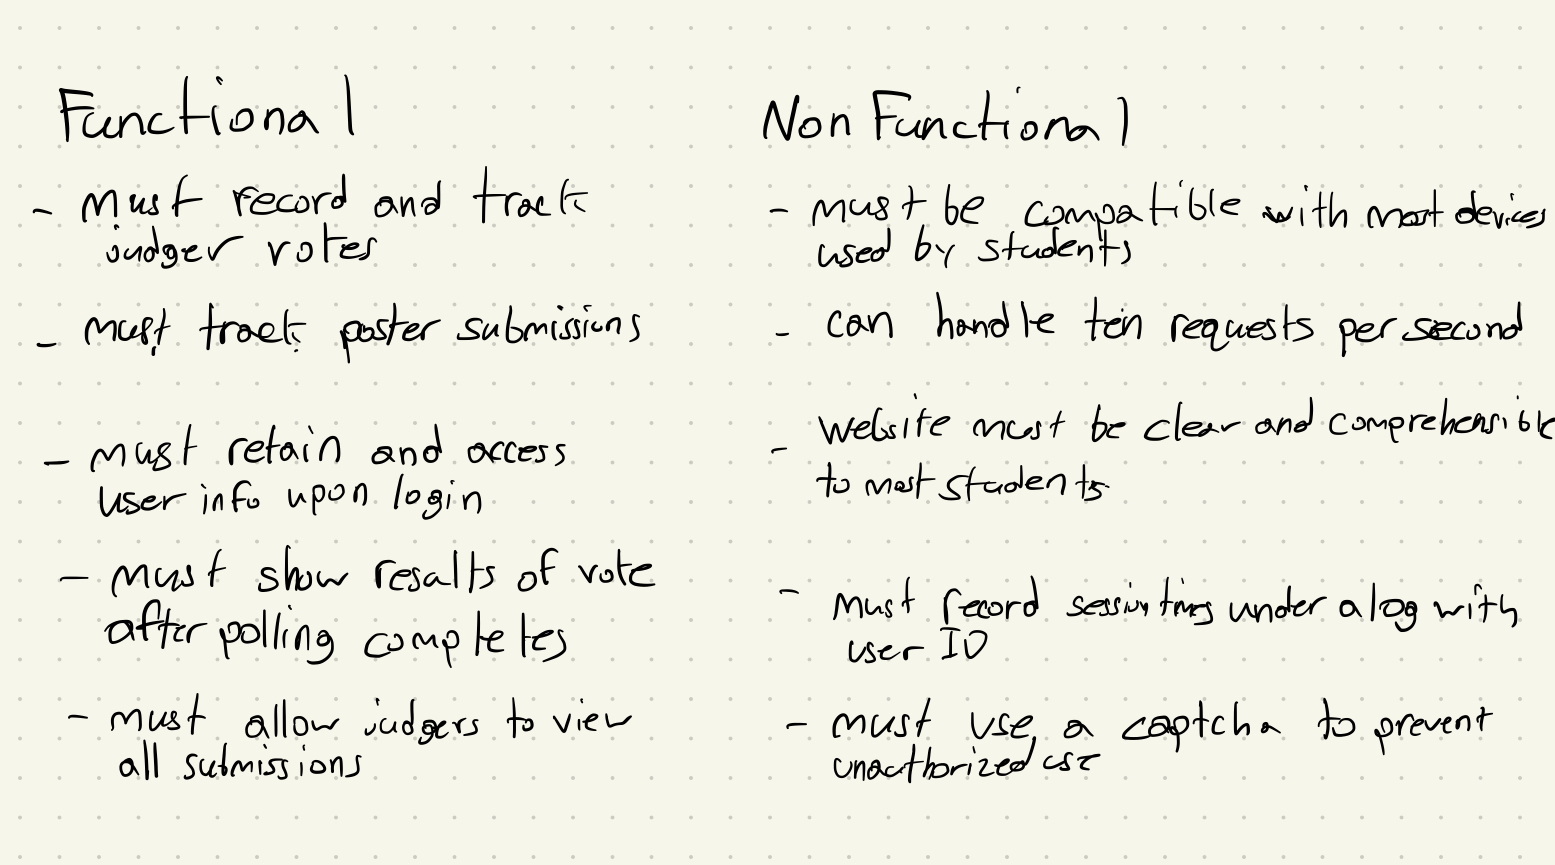 Functional
- must record and track
judger votes
- must track poster submissions
- must retain and access
user info upon login
- must show results of vote
after polling completes
- must allow judgers to view
all submissions
Non Functional
- must be compatible with most devices
used by students
- can handle ten requests per second
- website must be clear and comprehensible
to most students
- must record session under a log with
user ID
- must use a captcha to prevent
unauthorized use